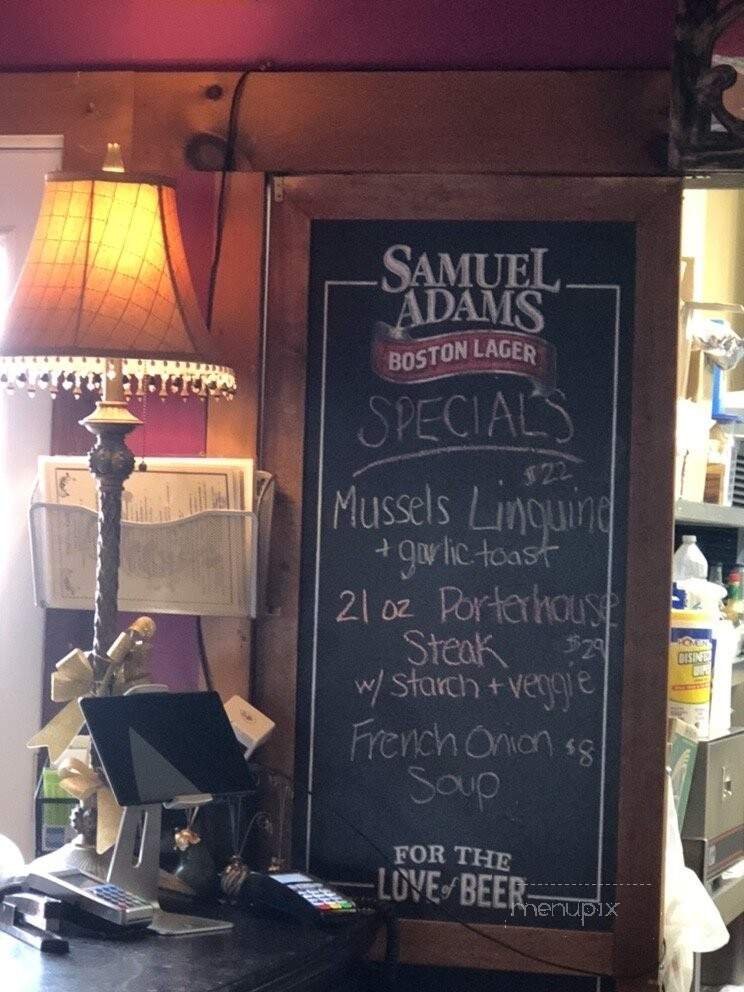 SAMUEL
ADAMS
BOSTON LAGER
SPECIALS
$22
Mussels Linguine
+ garlic toast
21 oz Porterhouse
Steak $29
w/ starch + veggie
French Onion $8
Soup
FOR THE
LOVE of BEER
menupix
HOMELINE
DISINFECT
WIPES